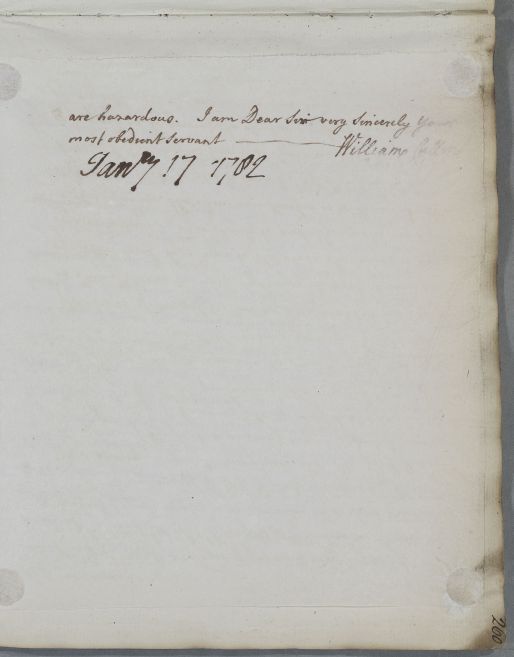 are hazardous. I am Dear Sir very Sincerely your
most obedient Servant — William
Janry 17 1782
260